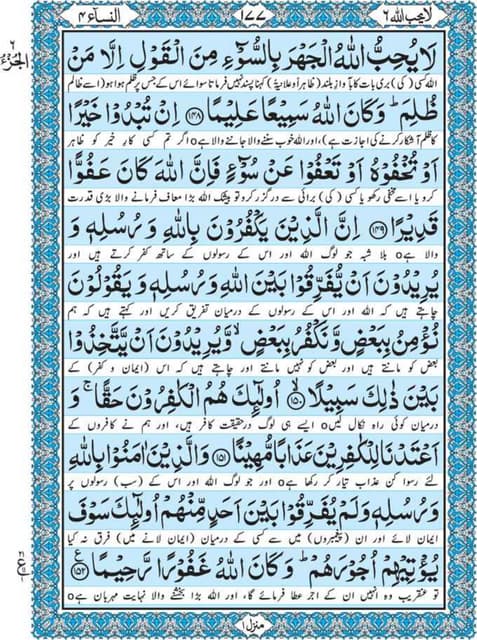 لا یحب اللہ ۶
۱۷۷
النسآء ۴
لَا يُحِبُّ اللّٰهُ الْجَهْرَ بِالسُّوْٓءِ مِنَ الْقَوْلِ اِلَّا مَنْ
اللہ کسی (کی) بری بات کا بآوازِ بلند (ظاہراً و علانیۃً) کہنا پسند نہیں فرماتا سوائے اس کے جس پر ظلم ہوا ہو (اسے ظالم
ظُلِمَ ؕ وَكَانَ اللّٰهُ سَمِيْعًا عَلِيْمًا ﴿۱۴۸﴾ اِنْ تُبْدُوْا خَيْرًا
کا ظلم آشکار کرنے کی اجازت ہے)، اور اللہ خوب سننے والا جاننے والا ہے o اگر تم کسی کارِ خیر کو ظاہر
اَوْ تُخْفُوْهُ اَوْ تَعْفُوْا عَنْ سُوْٓءٍ فَاِنَّ اللّٰهَ كَانَ عَفُوًّا
کرو یا اسے مخفی رکھو یا کسی (کی) برائی سے در گزر کرو تو بیشک اللہ بڑا معاف فرمانے والا بڑی قدرت
قَدِيْرًا ﴿۱۴۹﴾ اِنَّ الَّذِيْنَ يَكْفُرُوْنَ بِاللّٰهِ وَ رُسُلِهٖ وَ
والا ہے o بلا شبہ جو لوگ اللہ اور اس کے رسولوں کے ساتھ کفر کرتے ہیں اور
يُرِيْدُوْنَ اَنْ يُّفَرِّقُوْا بَيْنَ اللّٰهِ وَ رُسُلِهٖ وَ يَقُوْلُوْنَ
چاہتے ہیں کہ اللہ اور اس کے رسولوں کے درمیان تفریق کریں اور کہتے ہیں کہ ہم
نُؤْمِنُ بِبَعْضٍ وَّ نَكْفُرُ بِبَعْضٍ ۙ وَّ يُرِيْدُوْنَ اَنْ يَّتَّخِذُوْا
بعض کو مانتے ہیں اور بعض کو نہیں مانتے اور چاہتے ہیں کہ اس (ایمان و کفر) کے
بَيْنَ ذٰلِكَ سَبِيْلًا ﴿۱۵۰﴾ اُولٰٓئِكَ هُمُ الْكٰفِرُوْنَ حَقًّا ۚ وَ
درمیان کوئی راہ نکال لیں o ایسے ہی لوگ درحقیقت کافر ہیں، اور ہم نے کافروں کے
اَعْتَدْنَا لِلْكٰفِرِيْنَ عَذَابًا مُّهِيْنًا ﴿۱۵۱﴾ وَ الَّذِيْنَ اٰمَنُوْا بِاللّٰهِ
لئے رسوا کن عذاب تیار کر رکھا ہے o اور جو لوگ اللہ اور اس کے (سب) رسولوں پر
وَ رُسُلِهٖ وَ لَمْ يُفَرِّقُوْا بَيْنَ اَحَدٍ مِّنْهُمْ اُولٰٓئِكَ سَوْفَ
ایمان لائے اور ان (پیغمبروں) میں سے کسی کے درمیان (ایمان لانے میں) فرق نہ کیا
يُؤْتِيْهِمْ اُجُوْرَهُمْ ؕ وَ كَانَ اللّٰهُ غَفُوْرًا رَّحِيْمًا ﴿۱۵۲﴾ ع
تو عنقریب وہ انہیں ان کے اجر عطا فرمائے گا، اور اللہ بڑا بخشنے والا نہایت مہربان ہے o
منزل ۱
الجزء ۶